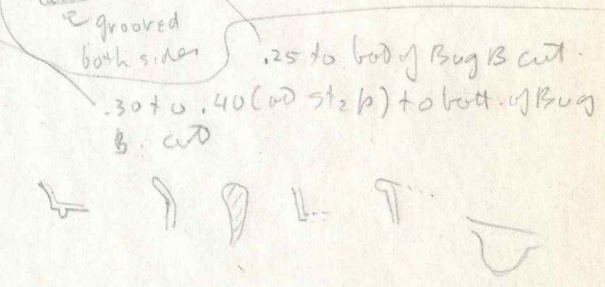 grooved
both sides
.25 to bot of Bug B cut.
.30 to .40 ( st2p) to bott. of Bug
B. cut